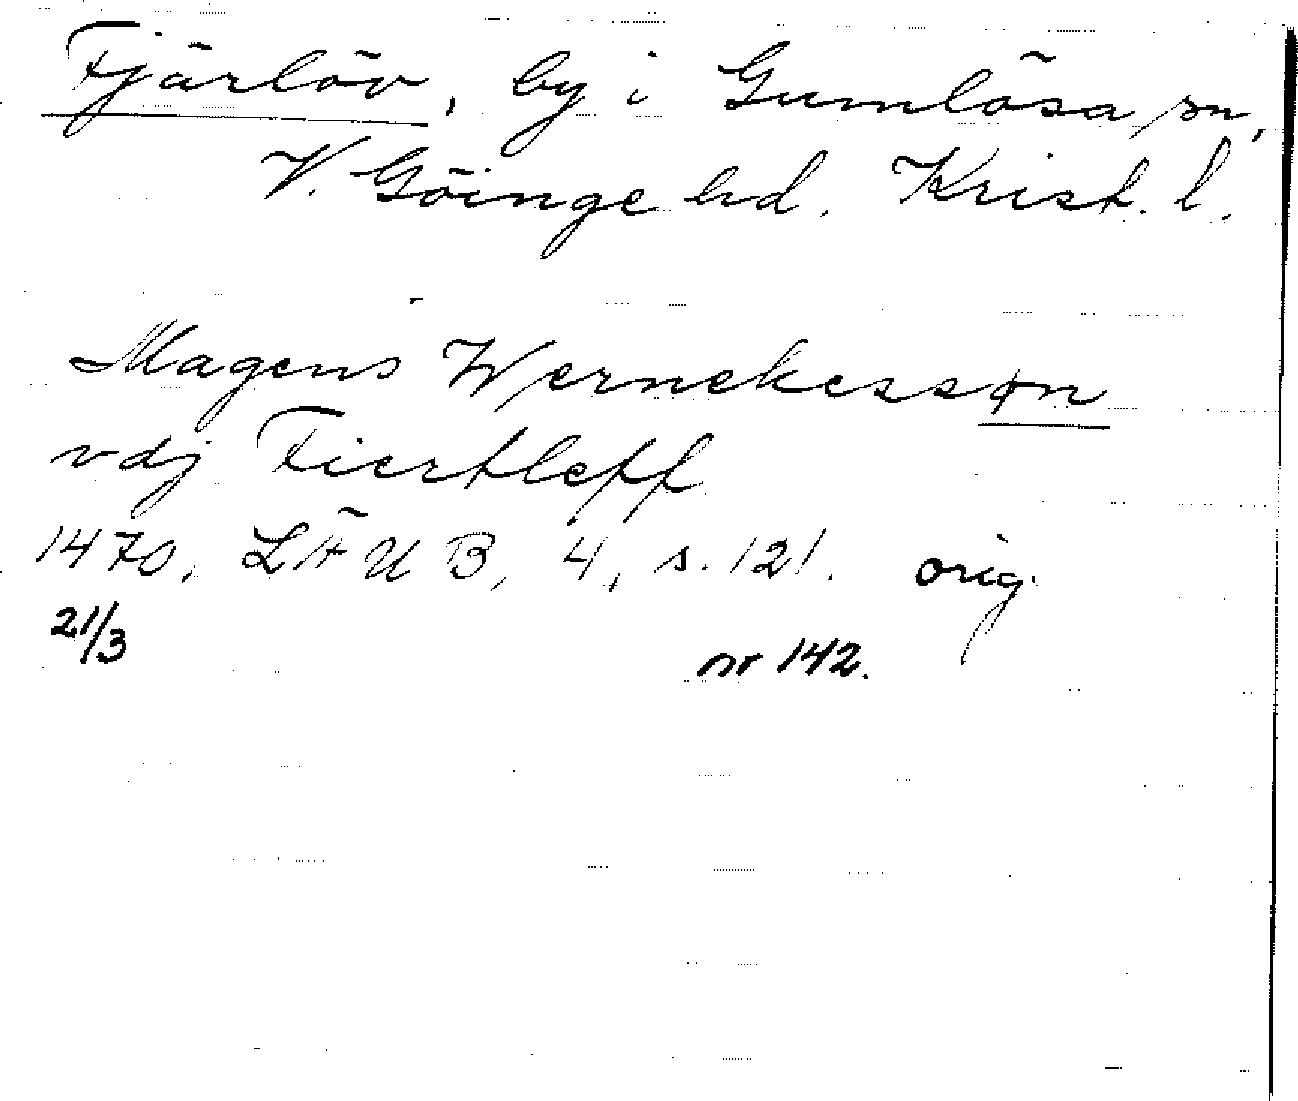 Fjärlöv, by i Gumlösa sn,
V. Göinge hd. Krist. l.
Magens Wernekessøn
vdj Fiertleff
1470, LÄUB, 4, s. 121. orig.
21/3 nr 142.